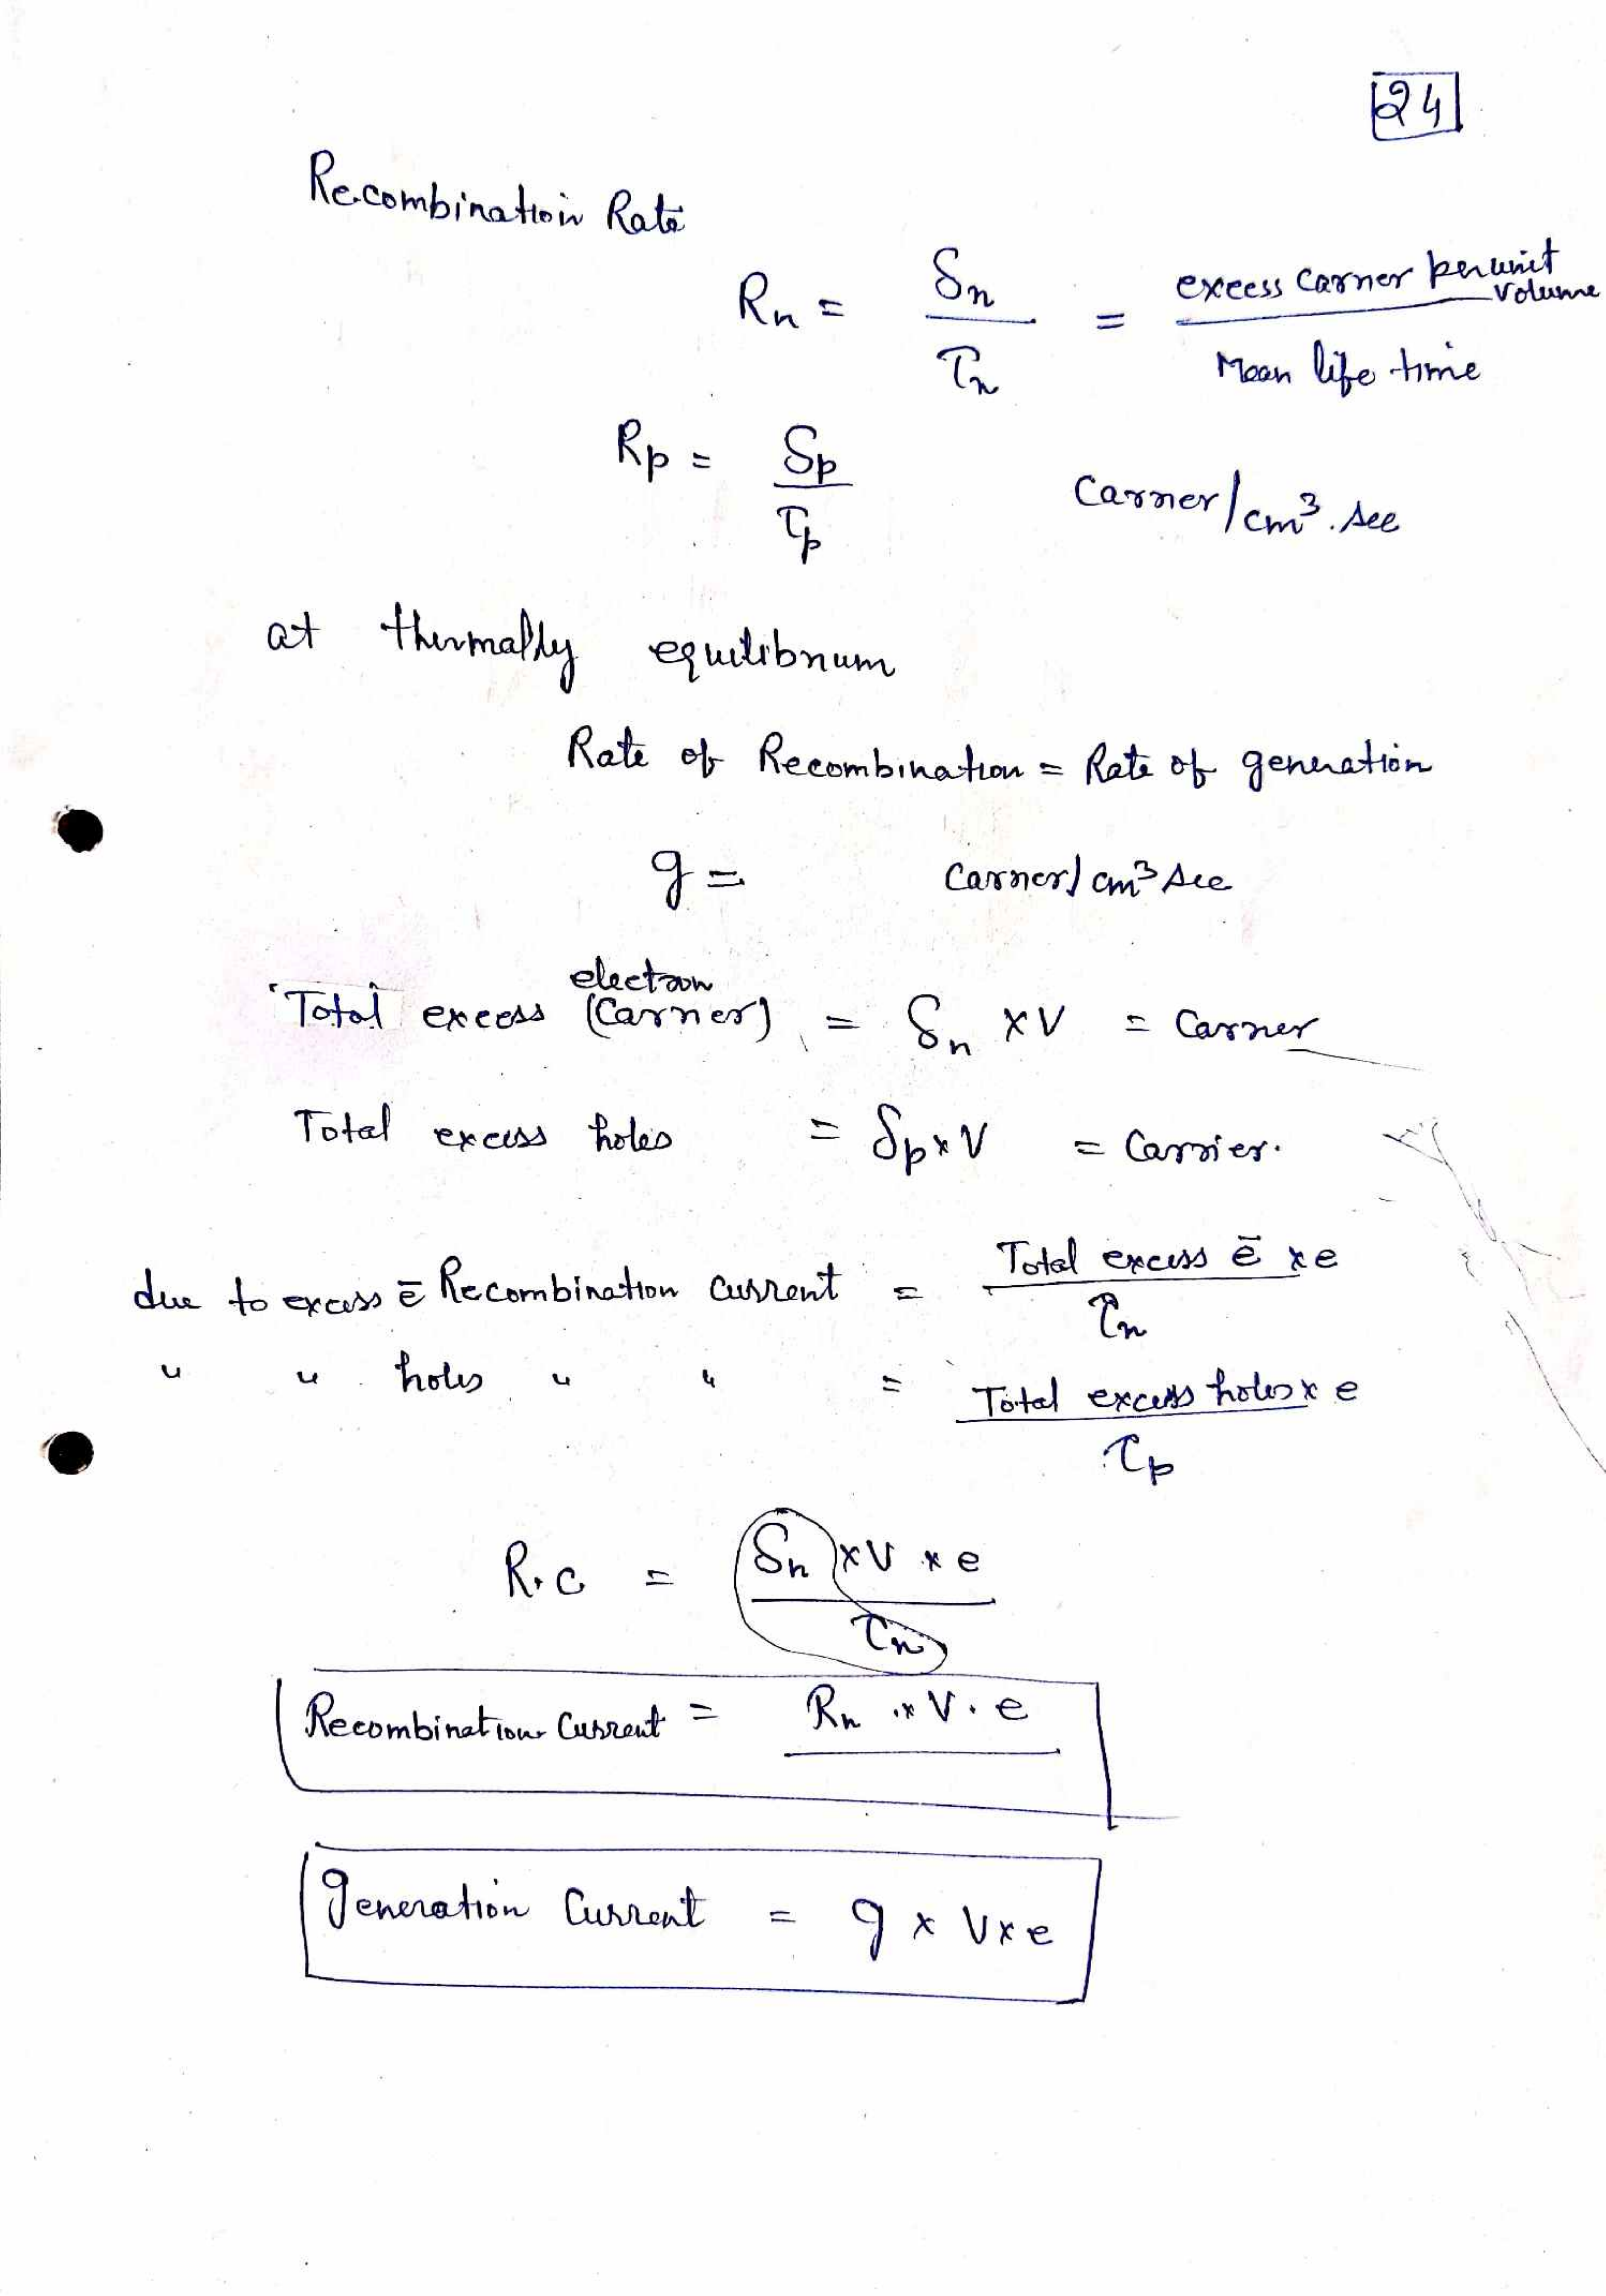 24
Recombination Rate
Rn = δn / τn = excess carrier per unit volume / Mean life time
Rp = δp / τp carrier/cm³.sec
at thermally equilibrium
Rate of Recombination = Rate of generation
g = carrier/cm³ sec
Total excess electron (carrier) = δn × V = carrier
Total excess holes = δp × V = carrier.
due to excess ē Recombination current = Total excess ē × e / τn
" " holes " " = Total excess holes × e / τp
R.C = δn × V × e / τn
Recombination Current = Rn × V . e
generation Current = g × V × e